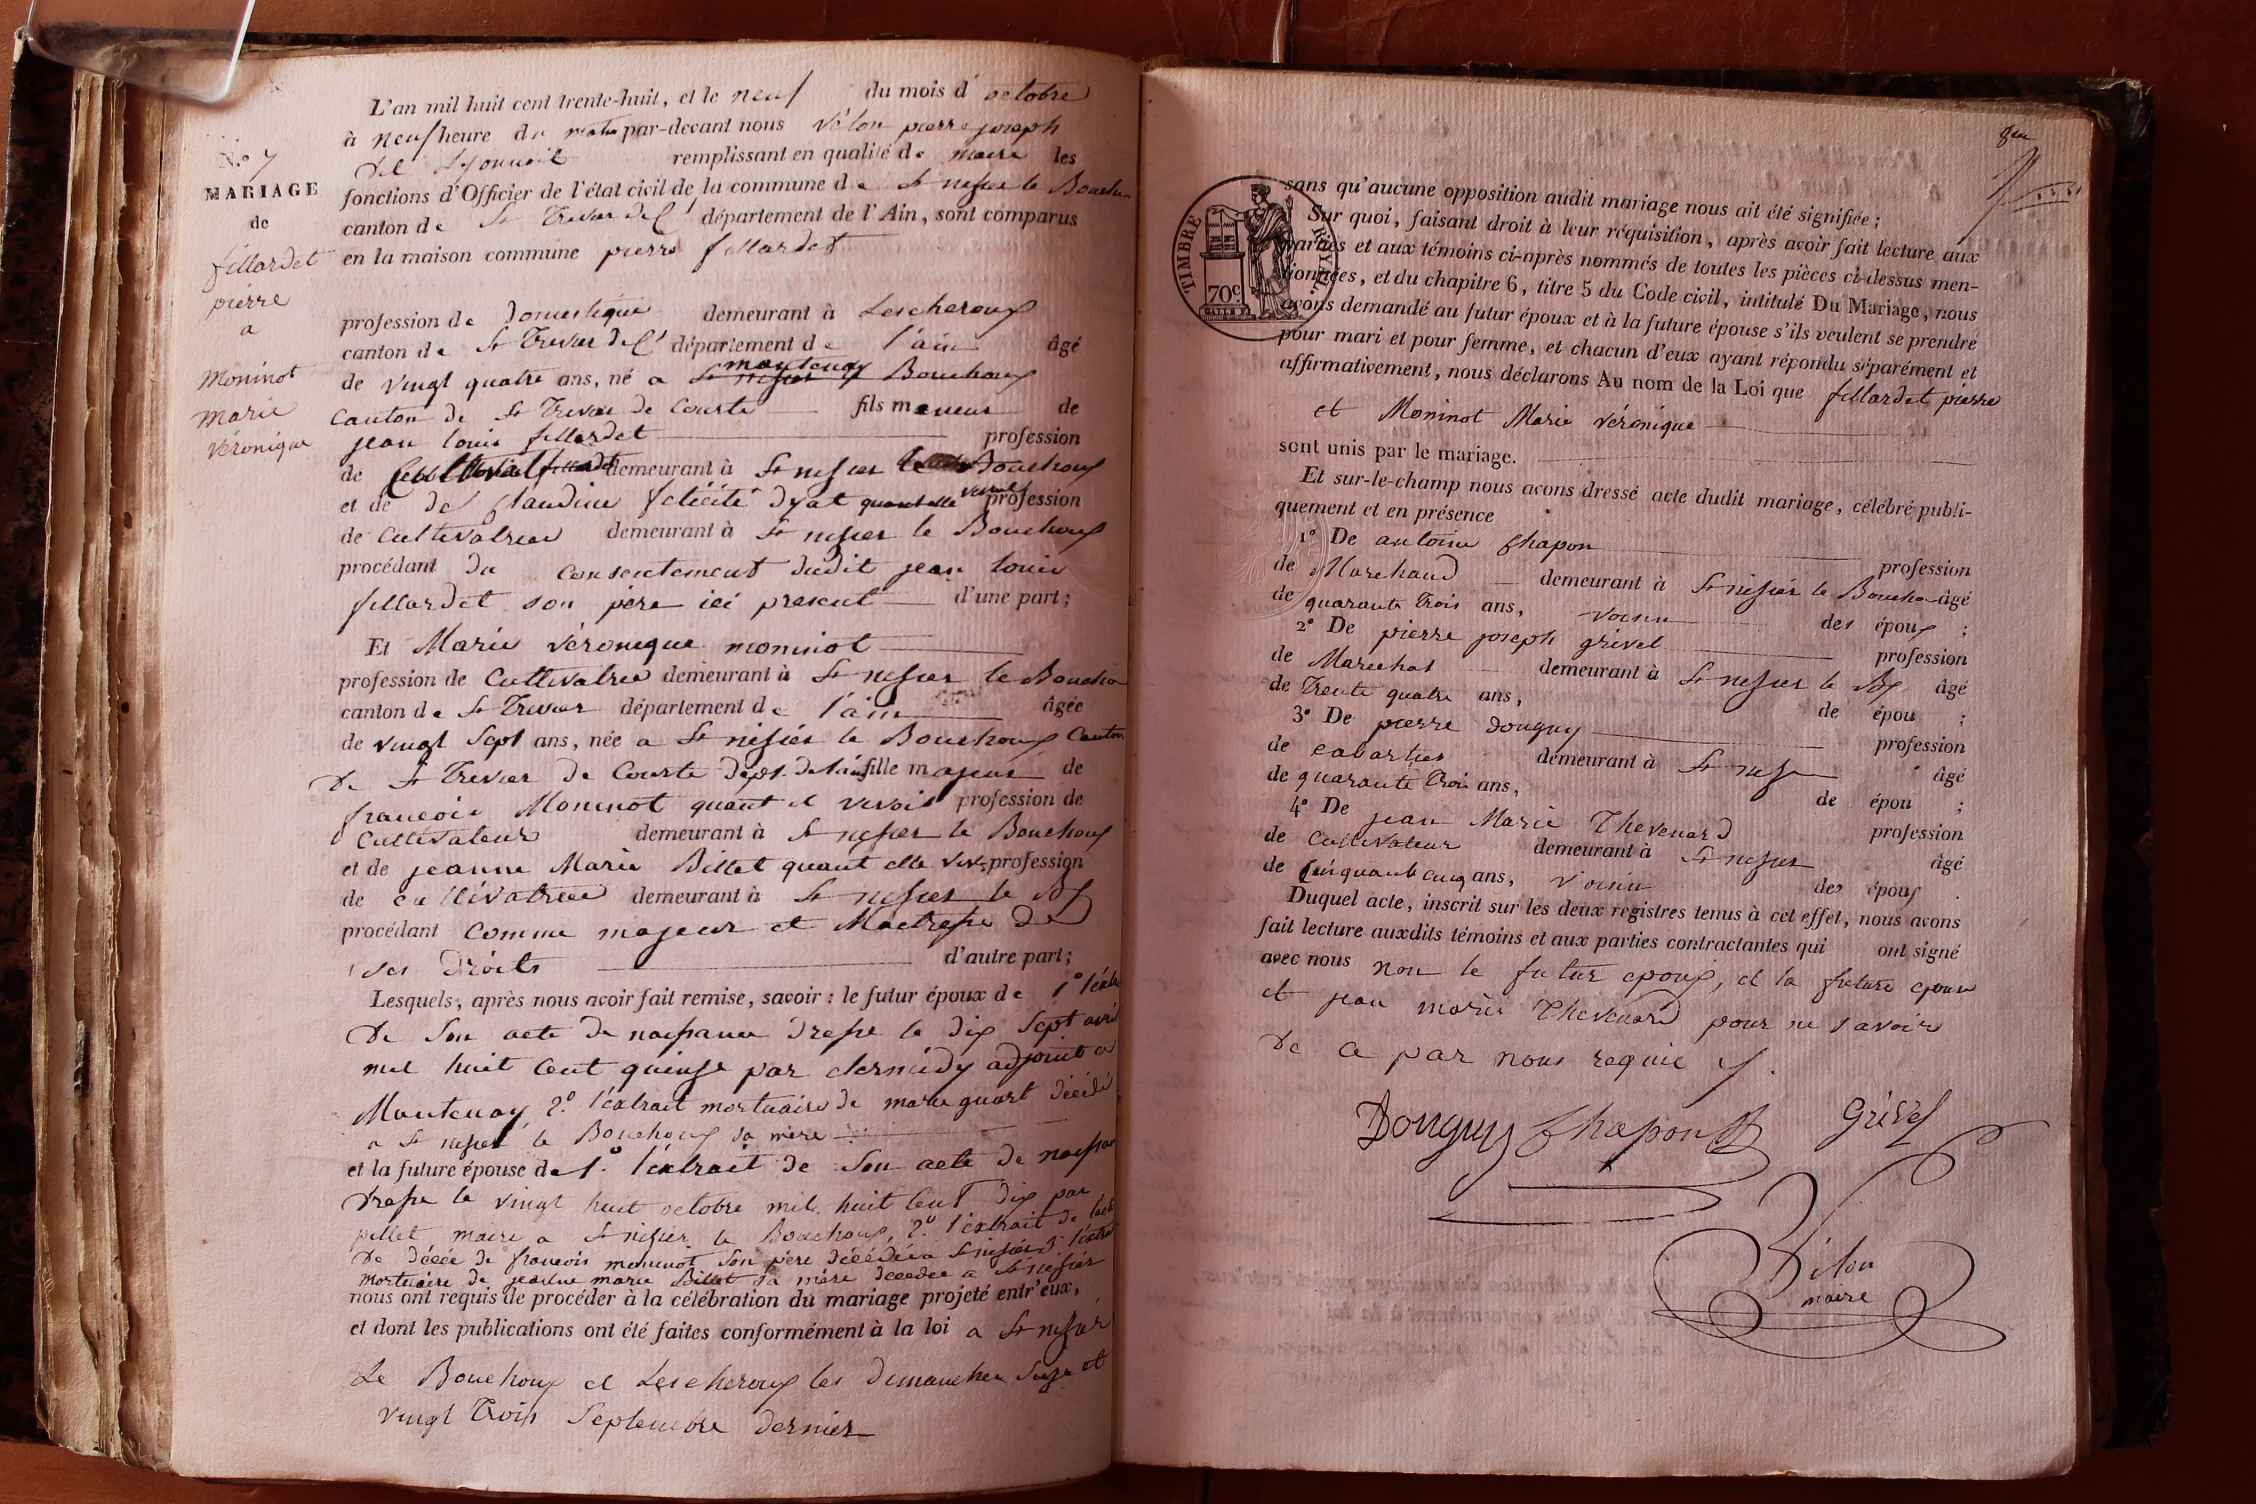 L'an mil huit cent trente-huit, et le neuf du mois d'octobre
à neuf heure du matin par-devant nous vélon pierre joseph
remplissant en qualité de maire les
N.° 7
MARIAGE
de
fillardet
pierre
a
Moninot
marie
véronique
fonctions d'Officier de l'état civil de la commune de St nisier le Bouchou
canton de St Trivier de Ct département de l'Ain, sont comparus
en la maison commune pierre fillardet
profession de Domestique demeurant à Lescheroux
canton de St Trivier de Ct département de l'ain âgé
de vingt quatre ans, né a montenay
canton de St Trivier de Courte fils meneur de
jean louis fillardet profession
de Cultivateur demeurant à St nisier le Bouchoux
et de de Claudine félicité Dyat quant elle vivait profession
de Cultivatrice demeurant à St nisier le Bouchoux
procédant du consentement dudit jean louis
fillardet son père ici présent d'une part;
Et Marie véronique moninot
profession de Cultivatrice demeurant à St nisier le Bouchou
canton de St Trivier département de l'ain âgée
de vingt sept ans, née a St nisier le Bouchoux Canton
De St Trivier de Courte dept. de l'ain fille majeure de
francois Moninot quant il vivois profession de
Cultivateur demeurant à St nisier le Bouchoux
et de jeanne Marie Billet quant elle vivs profession
de cultivatrice demeurant à St nisier le Bx
procédant comme majeur et Maitresse de
ses Droits d'autre part;
Lesquels, après nous avoir fait remise, savoir : le futur époux de 1° l'extr
De son acte de naissance dressé le dix sept avril
mil huit cent quinse par clermidy adjoint a
Montenay 2.° l'extrait mortuaire de marie guart décédé
a St nisier le Bouchoux sa mère
et la future épouse de 1.° l'extrait de son acte de naissan
dressé le vingt huit octobre mil huit cent dix par
pillet maire a St nisier le Bouchoux, 2.° l'extrait de lacte
De décée de francois moninot son père décédé a St nisier 3° l'extrai
mortuaire de jeanne marie Billet sa mère décédée a St nisier
nous ont requis de procéder à la célébration du mariage projeté entr'eux,
et dont les publications ont été faites conformément à la loi a St nisier
Le Bouchoux et Lescheroux les dimanches seize et
vingt Trois Septembre dernier
TIMBRE ROYAL
70c
sans qu'aucune opposition audit mariage nous ait été signifiée;
Sur quoi, faisant droit à leur réquisition, après avoir fait lecture aux
parties et aux témoins ci-après nommés de toutes les pièces ci-dessus men-
tionnées, et du chapitre 6, titre 5 du Code civil, intitulé Du Mariage, nous
avons demandé au futur époux et à la future épouse s'ils veulent se prendre
pour mari et pour femme, et chacun d'eux ayant répondu séparément et
affirmativement, nous déclarons Au nom de la Loi que fillardet pierre
et Moninot Marie véronique
sont unis par le mariage.
Et sur-le-champ nous avons dressé acte dudit mariage, célébré publi-
quement et en présence
1° De antoine Chapon profession
de Marchand demeurant à St nisier le Boucho âgé
de quarante Trois ans, voisin des époux ;
2° De pierre joseph grivel profession
de Marechal demeurant à St nisier le Bx âgé
de Trente quatre ans, de épou ;
3° De pierre Donguy profession
de cabartier demeurant à St nisier âgé
de quarante Trois ans, de épou ;
4° De jean Marie Thevenard profession
de Cultivateur demeurant à St nisier âgé
de Cinquante cinq ans, voisin des époux
Duquel acte, inscrit sur les deux registres tenus à cet effet, nous avons
fait lecture auxdits témoins et aux parties contractantes qui ont signé
avec nous non le futur epoux, et la future epouse
et jean marie Thevenard pour ne savoir
De ce par nous requie
Donguy Chapon Grivel
Vélon
maire